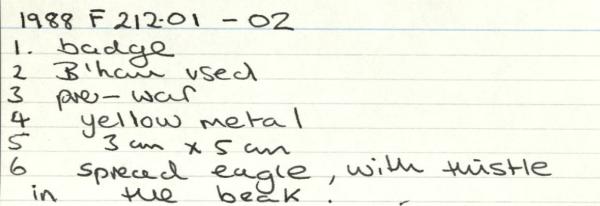 1988 F 212.01 - 02
1. badge
2 B'ham used
3 pre-war
4 yellow metal
5 3 cm x 5 cm
6 spread eagle, with thistle
in the beak.